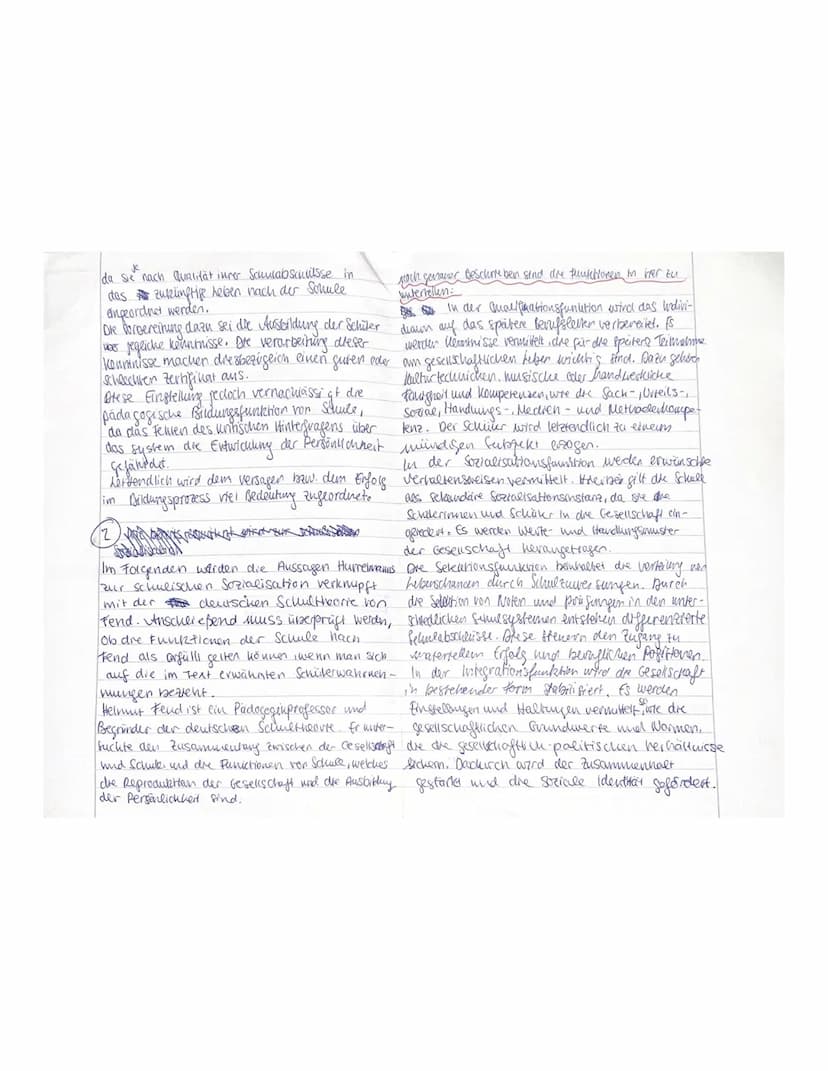 da sie* nach Qualität ihrer Schulabschlüsse in
das zukünftige Leben nach der Schule
angeordnet werden.
Die Vorbereitung dazu sei die Ausbildung der Schüler
jegliche Kenntnisse. Die Verarbeitung dieser
Kenntnisse machen diesbezüglich einen guten oder
schlechten Zertifikat aus.
Diese Einstellung jedoch vernachlässigt die
pädagogische Bildungsfunktion von Schule,
da das fehlen des kritischen Hinterfragens über
das System die Entwicklung der Persönlichkeit
gefährdet.
Letztendlich wird dem Versagen bzw. dem Erfolg
im Bildungsprozess viel Bedeutung zugeordnet.
2
Im Folgenden werden die Aussagen Hurrelmanns
zur schulischen Sozialisation verknüpft
mit der deutschen Schultheorie von
Fend. Anschließend muss überprüft werden,
ob die Funktionen der Schule nach
Fend als erfüllt gelten können, wenn man sich
auf die im Text erwähnten Schülerwahrneh-
mungen bezieht.
Helmut Fend ist ein Pädagogikprofessor und
Begründer der deutschen Schultheorie. Er unter-
suchte den Zusammenhang zwischen der Gesellschaft
und Schule und die Funktionen von Schule, welches
die Reproduktion der Gesellschaft und die Ausbildung
der Persönlichkeit sind.
noch genauer beschrieben sind die Funktionen in vier zu
unterteilen:
In der Qualifikationsfunktion wird das Indivi-
duum auf das spätere Berufsleben vorbereitet. Es
werden Kenntnisse vermittelt, die für die spätere Teilnahme
am gesellschaftlichen Leben wichtig sind. Dazu gehören
Kulturtechniken, musische oder handwerkliche
Fähigkeit und Kompetenzen, wie die Sach-, Urteils-,
Soziale, Handlungs-, Medien- und Methodenkompe-
tenz. Der Schüler wird letztendlich zu einem
mündigen Subjekt erzogen.
In der Sozialisationsfunktion werden erwünschte
Verhaltensweisen vermittelt. Hierbei gilt die Schule
als sekundäre Sozialisationsinstanz, da sie die
Schülerinnen und Schüler in die Gesellschaft ein-
gliedert. Es werden Werte- und Handlungsmuster
der Gesellschaft herangetragen.
Die Selektionsfunktion beinhaltet die Verteilung von
Lebenschancen durch Schulzuweisungen. Durch
die Selektion von Noten und Prüfungen in den unter-
schiedlichen Schulsystemen entstehen differenzierte
Schulabschlüsse. Diese steuern den Zugang zu
materiellem Erfolg und beruflichen Positionen.
In der Integrationsfunktion wird die Gesellschaft
in bestehender Form stabilisiert. Es werden
Einstellungen und Haltungen vermittelt, so wie die
gesellschaftlichen Grundwerte und Normen,
die die gesellschaftlich-politischen Verhältnisse
sichern. Dadurch wird der Zusammenhalt
gestärkt und die soziale Identität gefördert.